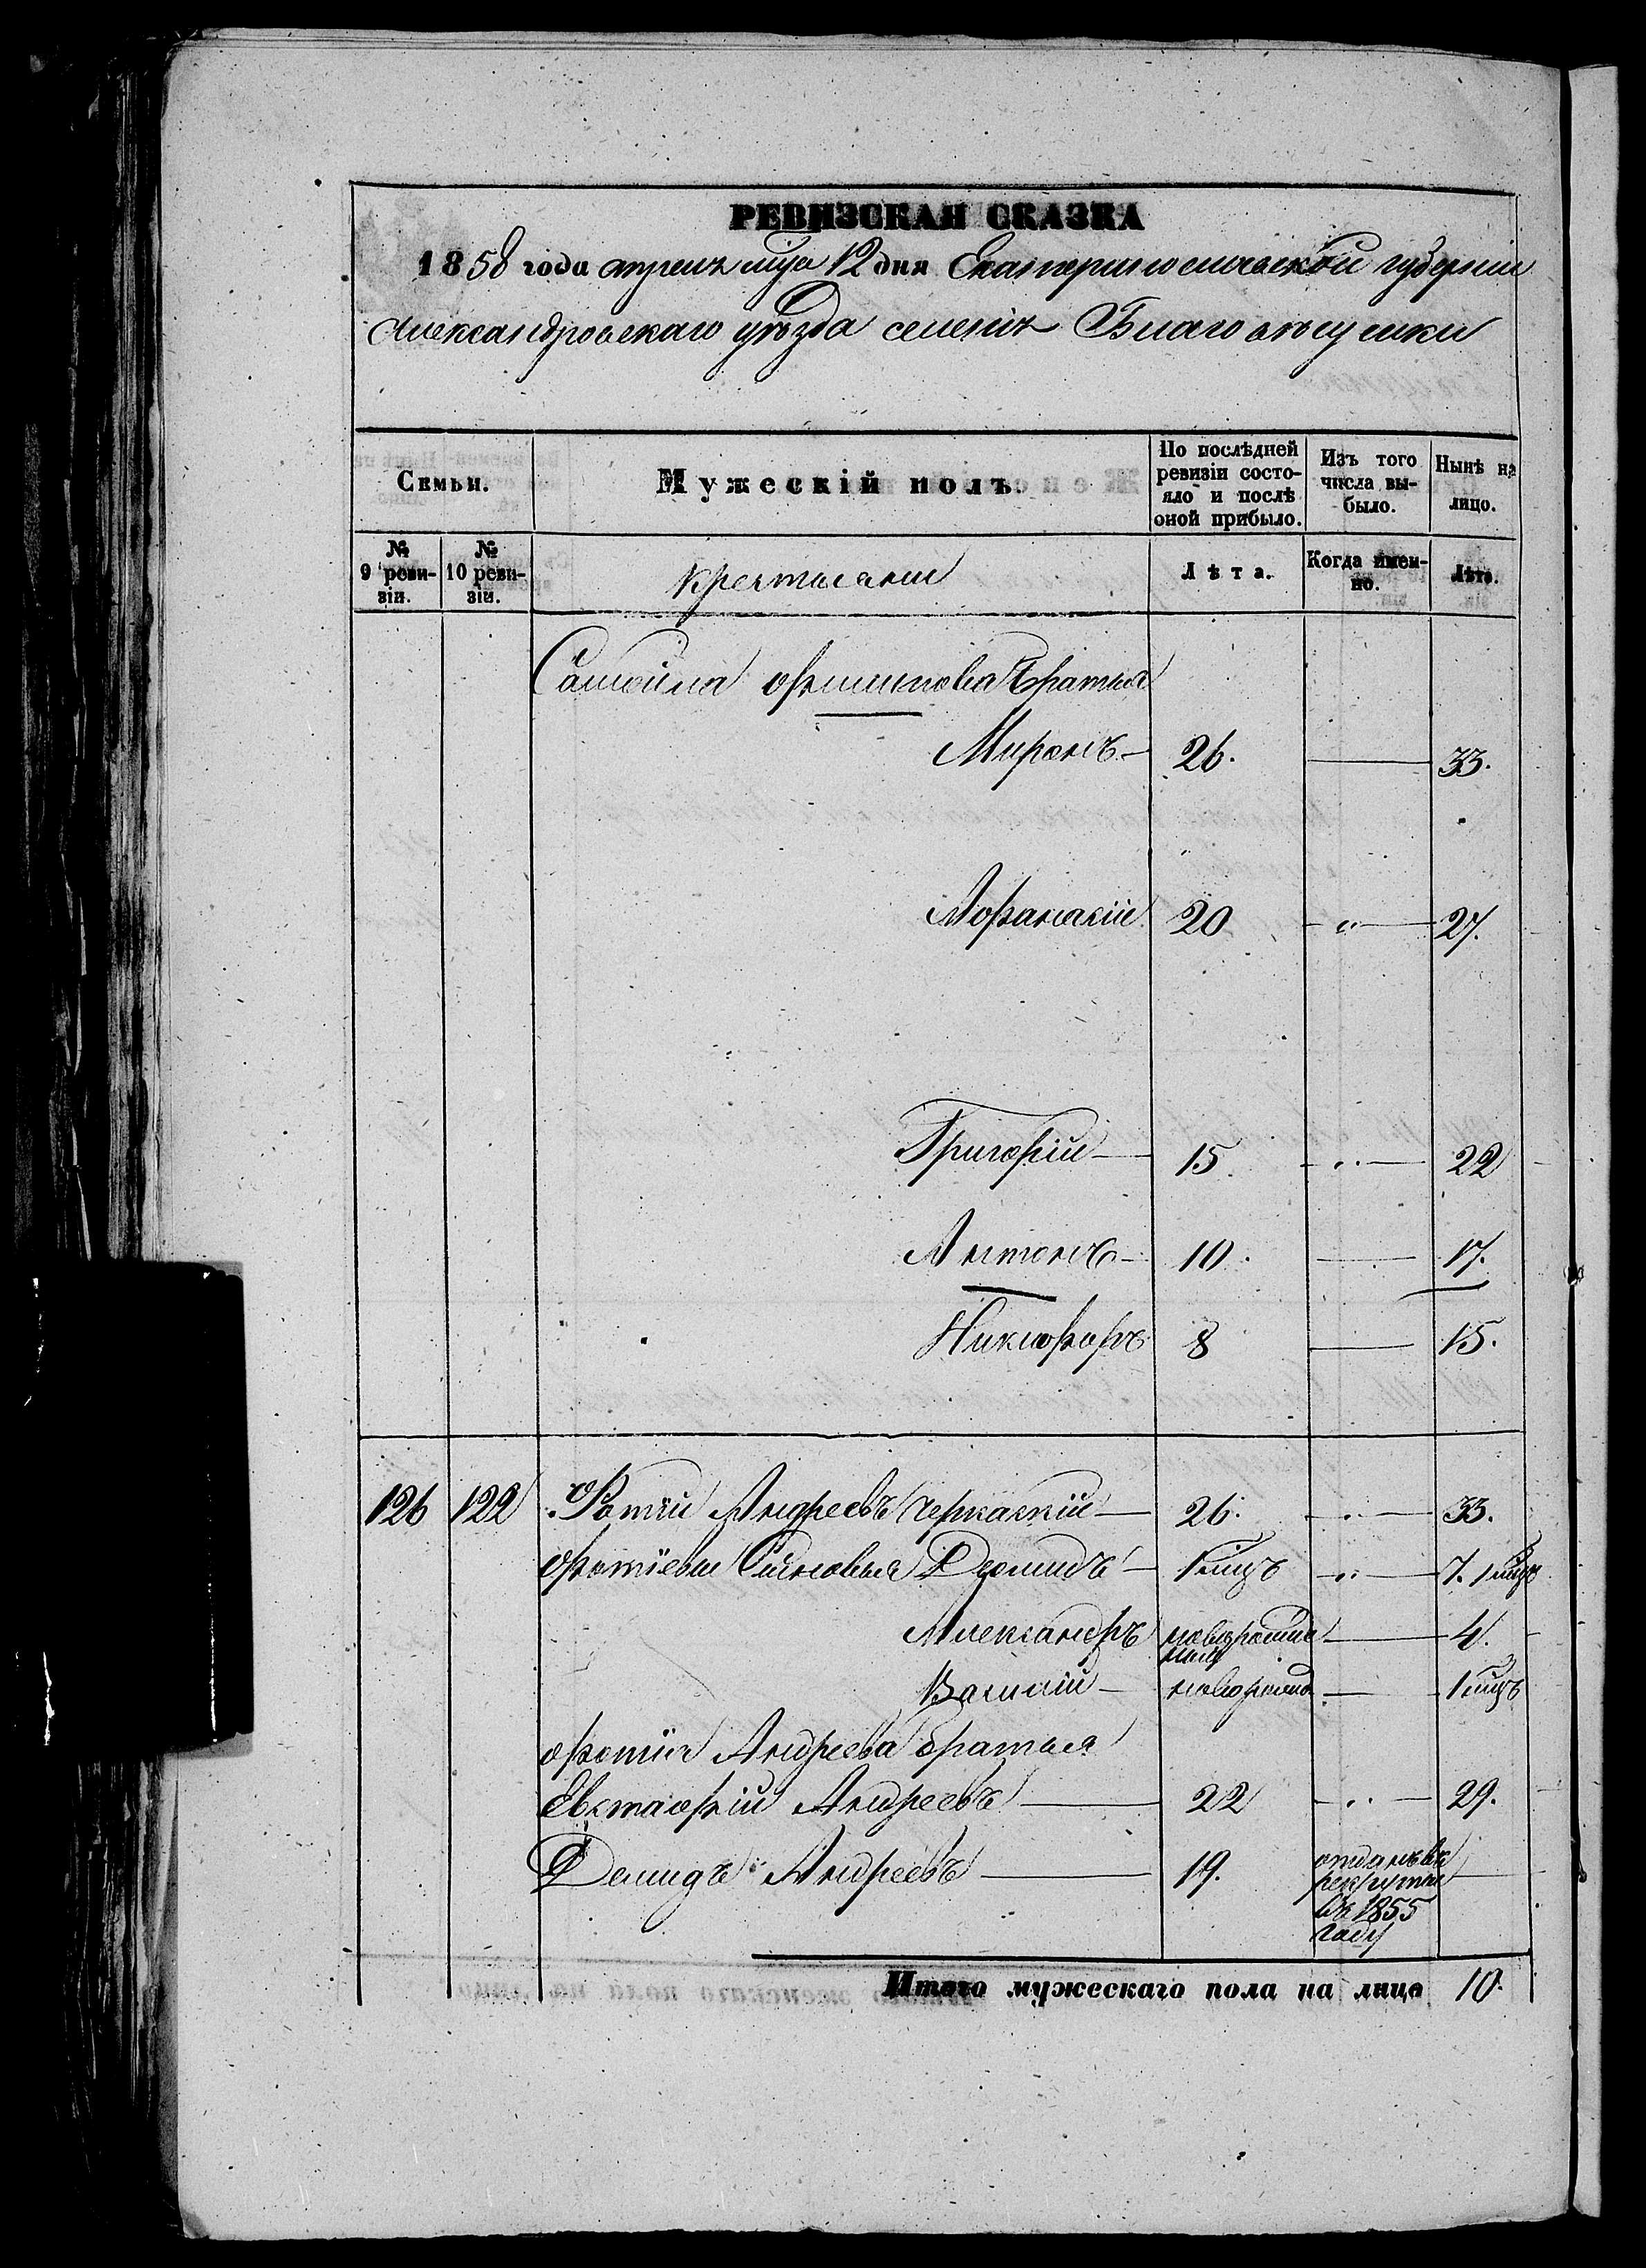 РЕВИЗСКАЯ СКАЗКА
1858 года апреля мца 12 дня Екатеринославской губернии
Александровскаго уѣзда селенія
Семьи. Мужескій полъ. По послѣдней ревизіи состояло и послѣ оной прибыло. Изъ того числа выбыло. Нынѣ на лицо.
№ 9 ревизіи. № 10 ревизіи. крестьяне Лѣта. Когда именно. Лѣта.
Самойла Филипова братья
Миронъ — 26. — 33.
Афанасій 20 " — 27.
Григорій — 15. " — 22
Антонъ — 10. — 17.
Никифоръ 8 — 15.
126 122 Фотій Андреевъ Черкаскій — 26. " — 33.
Фотіевы Сыновья Деомидъ — 1 мцъ " — 7. 1 мцъ
Александръ новорожденный — 4.
Василій — новорожд — 1 мцъ
Фотія Андреева братья
Евстафій Андреевъ — 22 " — 29.
Демидъ Андреевъ — 19. отданъ въ рекруты въ 1855 году —
Итого мужескаго пола на лицо 10.